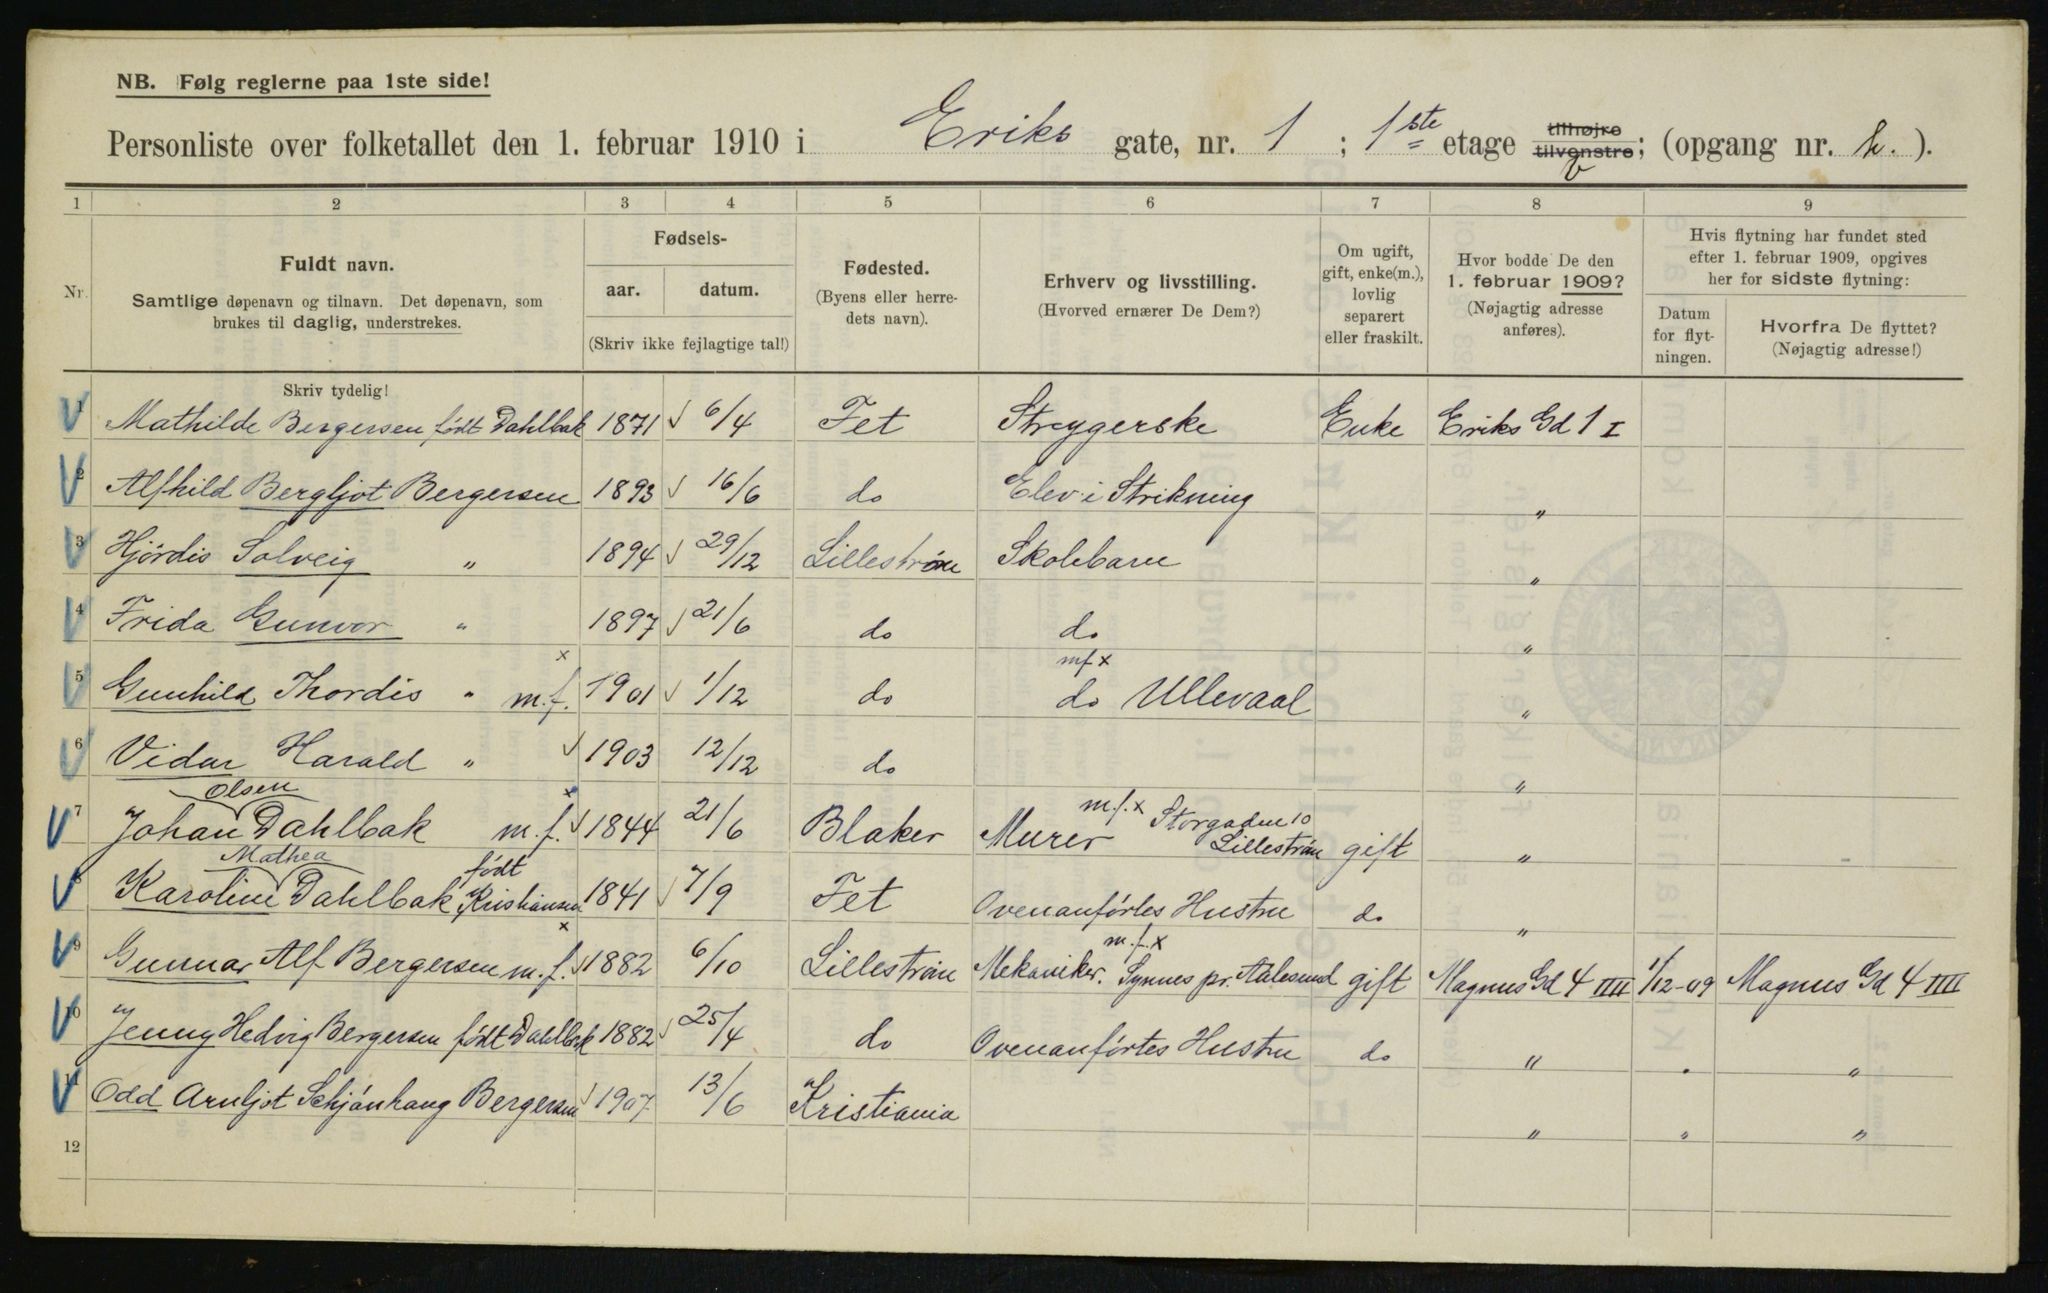 NB. Følg reglerne paa 1ste side!
Personliste over folketallet den 1. februar 1910 i Eriks gate, nr. 1 ; 1ste etage tilhøjre tilvenstre; (opgang nr. h. ).
1 2 3 4 5 6 7 8 9
Nr. Fuldt navn. Samtlige døpenavn og tilnavn. Det døpenavn, som brukes til daglig, understrekes.
Fødsels- aar. datum. (Skriv ikke fejlagtige tal!)
Fødested. (Byens eller herredets navn).
Erhverv og livsstilling. (Hvorved ernærer De Dem?)
Om ugift, gift, enke(m.), lovlig separert eller fraskilt.
Hvor bodde De den 1. februar 1909? (Nøjagtig adresse anføres).
Hvis flytning har fundet sted efter 1. februar 1909, opgives her for sidste flytning:
Datum for flytningen. Hvorfra De flyttet? (Nøjagtig adresse!)
Skriv tydelig!
1 Mathilde Bergersen født Dahlbak 1871 6/4 Fet Strygerske Enke Eriks Gd 1 I
2 Alfhild Bergljot Bergersen 1893 16/6 do Elev i Strikning "
3 Hjørdis Solveig " 1894 29/12 Lillestrøm Skolebarn "
4 Frida Gunvor " 1897 21/6 do do "
5 Gunhild Thordis " m.f. x 1901 1/12 do do mf x Ullevaal "
6 Vidar Harald " 1903 12/12 do "
7 Johan Olsen Dahlbak m.f. x 1844 21/6 Blaker Murer m.f. x Storgaden 10 Lillestrøm gift "
8 Karoline Mathea Dahlbak født Kristiansen 1841 7/9 Fet Ovenanførtes Hustru do "
9 Gunnar Alf Bergersen m.f. x 1882 6/10 Lillestrøm Mekaniker. m.f. x Synnes pr. Aalesund gift Magnus Gd 4 IIII 1/12-09 Magnus Gd 4 IIII
10 Jenny Hedvig Bergersen født Dahlbak 1882 25/4 do Ovenanførtes Hustru do " " "
11 Odd Arnljot Schjønhaug Bergersen 1907 13/6 Kristiania " " "
12